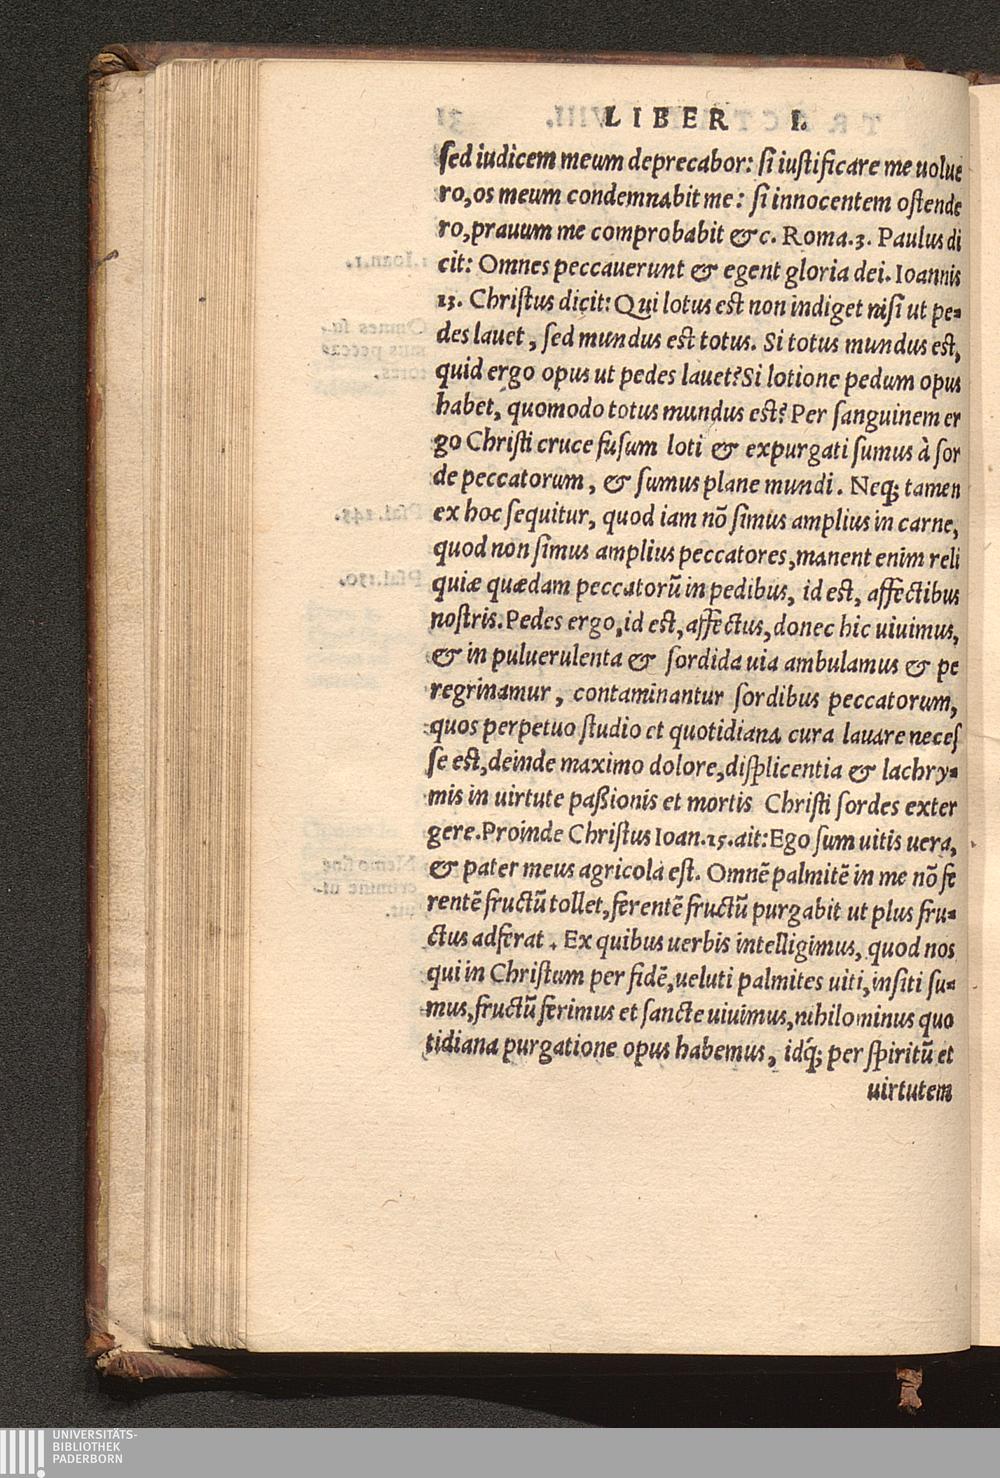 LIBER I.
sed iudicem meum deprecabor: si iustificare me uolue
ro, os meum condemnabit me: si innocentem ostende
ro, prauum me comprobabit &c. Roma.3. Paulus di
cit: Omnes peccauerunt & egent gloria dei. Ioannis
13. Christus dicit: Qui lotus est non indiget nisi ut pe-
des lauet, sed mundus est totus. Si totus mundus est,
quid ergo opus ut pedes lauet? Si lotione pedum opus
habet, quomodo totus mundus est? Per sanguinem er
go Christi cruce fusum loti & expurgati sumus à sor
de peccatorum, & sumus plane mundi. Neq; tamen
ex hoc sequitur, quod iam nõ simus amplius in carne,
quod non simus amplius peccatores, manent enim reli
quiæ quædam peccatorũ in pedibus, id est, affectibus
nostris. Pedes ergo, id est, affectus, donec hic uiuimus,
& in puluerulenta & sordida uia ambulamus & pe
regrinamur, contaminantur sordibus peccatorum,
quos perpetuo studio et quotidiana cura lauare neces
se est, deinde maximo dolore, displicentia & lachry-
mis in uirtute paßionis et mortis Christi sordes exter
gere. Proinde Christus Ioan.15. ait: Ego sum uitis uera,
& pater meus agricola est. Omnẽ palmitẽ in me nõ fe
rentẽ fructũ tollet, ferentẽ fructũ purgabit ut plus fru-
ctus adferat. Ex quibus uerbis intelligimus, quod nos
qui in Christum per fidẽ, ueluti palmites uiti, insiti su-
mus, fructũ ferimus et sancte uiuimus, nihilominus quo
tidiana purgatione opus habemus, idq́; per spiritũ et
uirtutem
UNIVERSITÄTS-
BIBLIOTHEK
PADERBORN